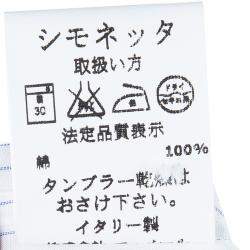 シモネッタ
取扱い方
30
ドライ
セキユ系
法定品質表示
綿 100%
タンブラー乾燥は
おさけ下さい。
イタリー製